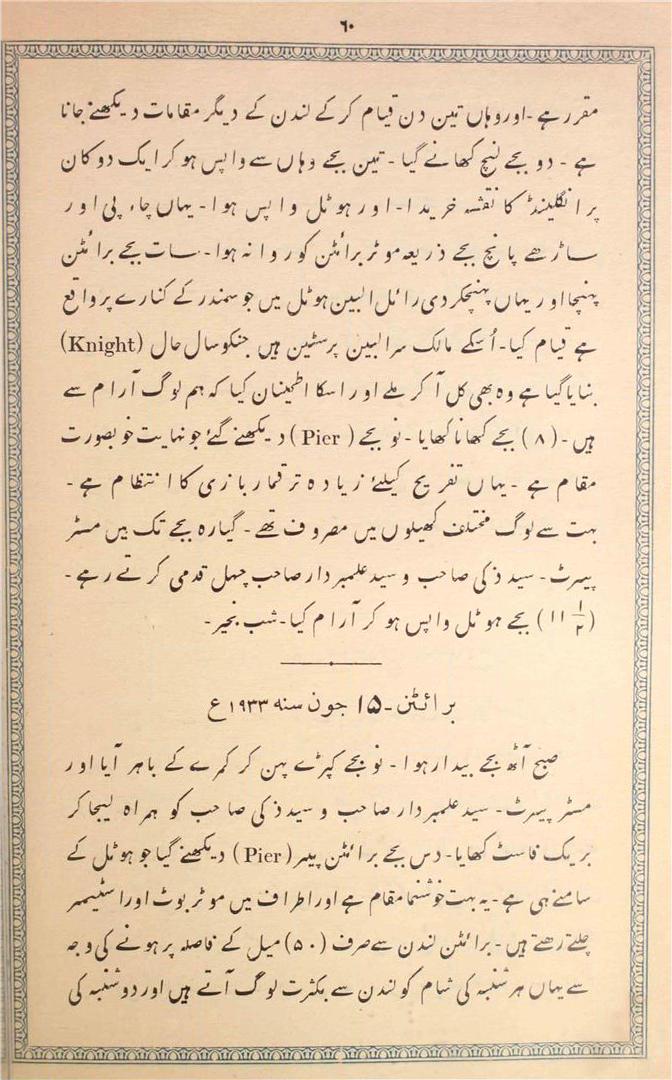 ٦٠
مقرر ہے - اور وہاں تین دن قیام کر کے لندن کے دیگر مقامات دیکھنے جانا
ہے - دو بجے لنچ کھانے گیا - تین بجے وہاں سے واپس ہو کر ایک دوکان
پر انگلینڈ کا نقشہ خریدا - اور ہوٹل واپس ہوا - یہاں چاء پی اور
ساڑھے پانچ بجے ذریعہ موٹر برائٹن کو روانہ ہوا - سات بجے برائٹن
پہنچا اور یہاں پہنچکر دی رائل البین ہوٹل میں جو سمندر کے کنارے پر واقع
ہے قیام کیا - اُسکے مالک سر البین پرسٹین ہیں جنکو سال حال (Knight)
بنایا گیا ہے وہ بھی کل آ کر ملے اور اسکا اطمینان کیا کہ ہم لوگ آرام سے
ہیں - (۸) بجے کھانا کھایا - نو بجے (Pier) دیکھنے گئے جو نہایت خوبصورت
مقام ہے - یہاں تفریح کیلئے زیادہ تر قمار بازی کا انتظام ہے -
بہت سے لوگ مختلف کھیلوں میں مصروف تھے - گیارہ بجے تک میں مسٹر
پیرٹ - سید ذکی صاحب و سید علمبردار صاحب چہل قدمی کرتے رہے -
(۱۱ ۱/۲) بجے ہوٹل واپس ہو کر آرام کیا - شب بخیر -
برائٹن - ۱۵ جون سنہ ۱۹۳۳ ع
صبح آٹھ بجے بیدار ہوا - نو بجے کپڑے پہن کر کمرے کے باہر آیا اور
مسٹر پیرٹ - سید علمبردار صاحب و سید ذکی صاحب کو ہمراہ لیجا کر
بریک فاسٹ کھایا - دس بجے برائٹن پیر (Pier) دیکھنے گیا جو ہوٹل کے
سامنے ہی ہے - یہ بہت خوشنما مقام ہے اور اطراف میں موٹر بوٹ اور اسٹیمر
چلتے رہتے ہیں - برائٹن لندن سے صرف (۵۰) میل کے فاصلہ پر ہونے کی وجہ
سے یہاں ہر شنبہ کی شام کو لندن سے بکثرت لوگ آتے ہیں اور دو شنبہ کی